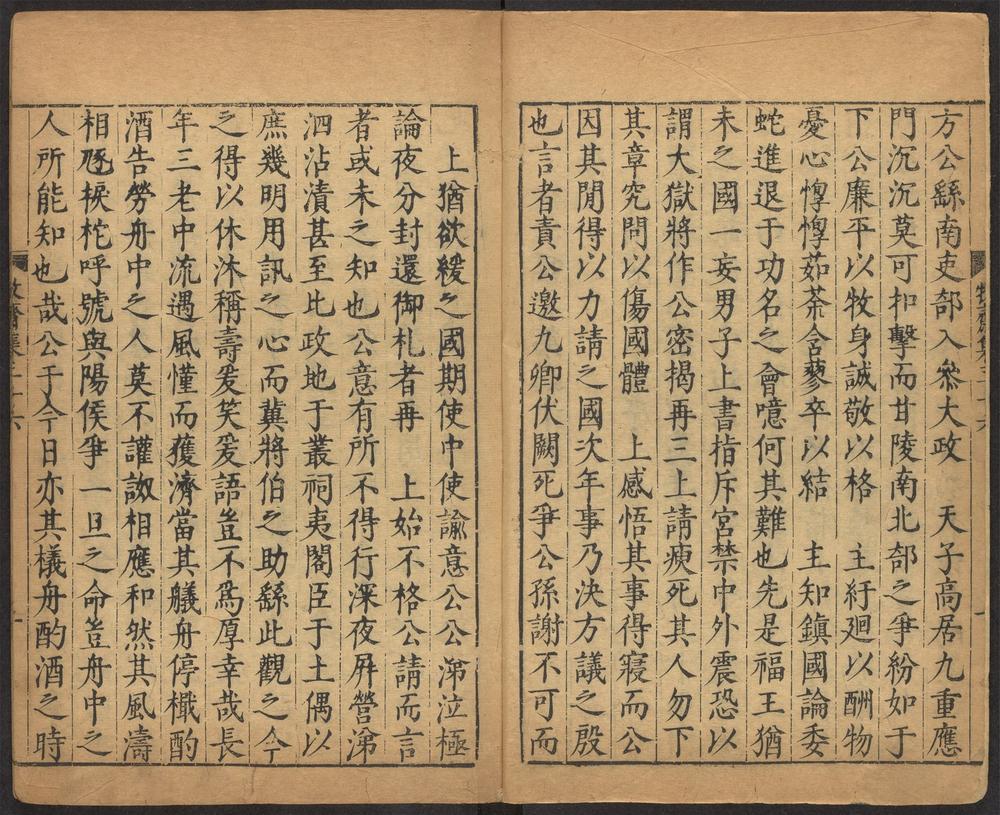 方公繇南吏部入叅大政　天子高居九重應
門沉沉莫可扣擊而甘陵南北部之爭紛如于
下公廉平以牧身誠敬以格　主紆廻以酬物
憂心惸惸茹荼含蓼卒以結　主知鎮國論委
蛇進退于功名之會噫何其難也先是福王猶
未之國一妄男子上書指斥宮禁中外震恐以
謂大獄將作公密揭再三上請瘐死其人勿下
其章究問以傷國體　上感悟其事得寢而公
因其閒得以力請之國次年事乃決方議之殷
也言者責公邀九卿伏闕死爭公孫謝不可而
牧齋集三十六
一
上猶欲緩之國期使中使諭意公公涕泣極
論夜分封還御札者再　上始不格公請而言
者或未之知也公意有所不得行深夜屛營涕
泗沾漬甚至比政地于叢祠夷閣臣于土偶以
庶幾明用訊之心而冀將伯之助繇此觀之今
之得以休沐稱壽爰笑爰語豈不爲厚幸哉長
年三老中流遇風僅而獲濟當其艤舟停檝酌
酒告勞舟中之人莫不讙譈相應和然其風濤
相豗棙柁呼號與陽侯爭一旦之命豈舟中之
人所能知也哉公于今日亦其檥舟酌酒之時
牧齋集三十六
一